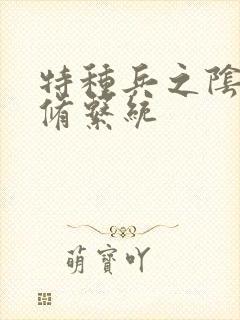 特種兵之陰
脩繫統
萌寶吖